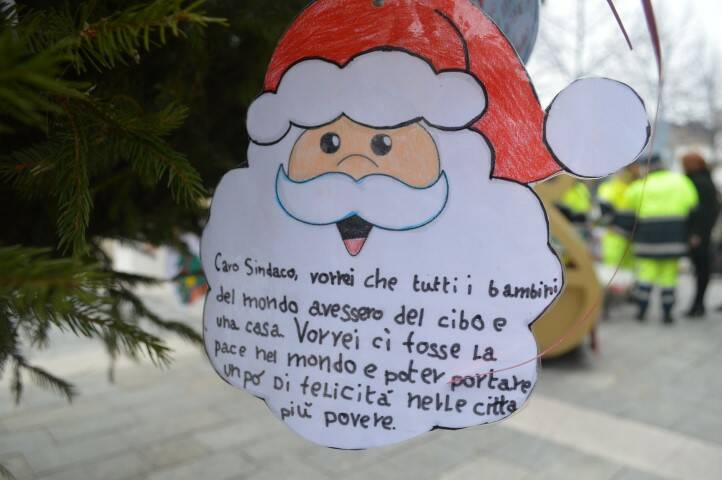 Caro Sindaco, vorrei che tutti i bambini
del mondo avessero del cibo e
una casa. Vorrei ci fosse la
pace nel mondo e poter portare
un pó di felicitá nelle cittá
più povere.